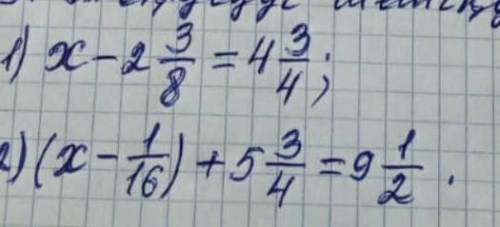 1) x − 2 3/8 = 4 3/4;
2) (x − 1/16) + 5 3/4 = 9 1/2.